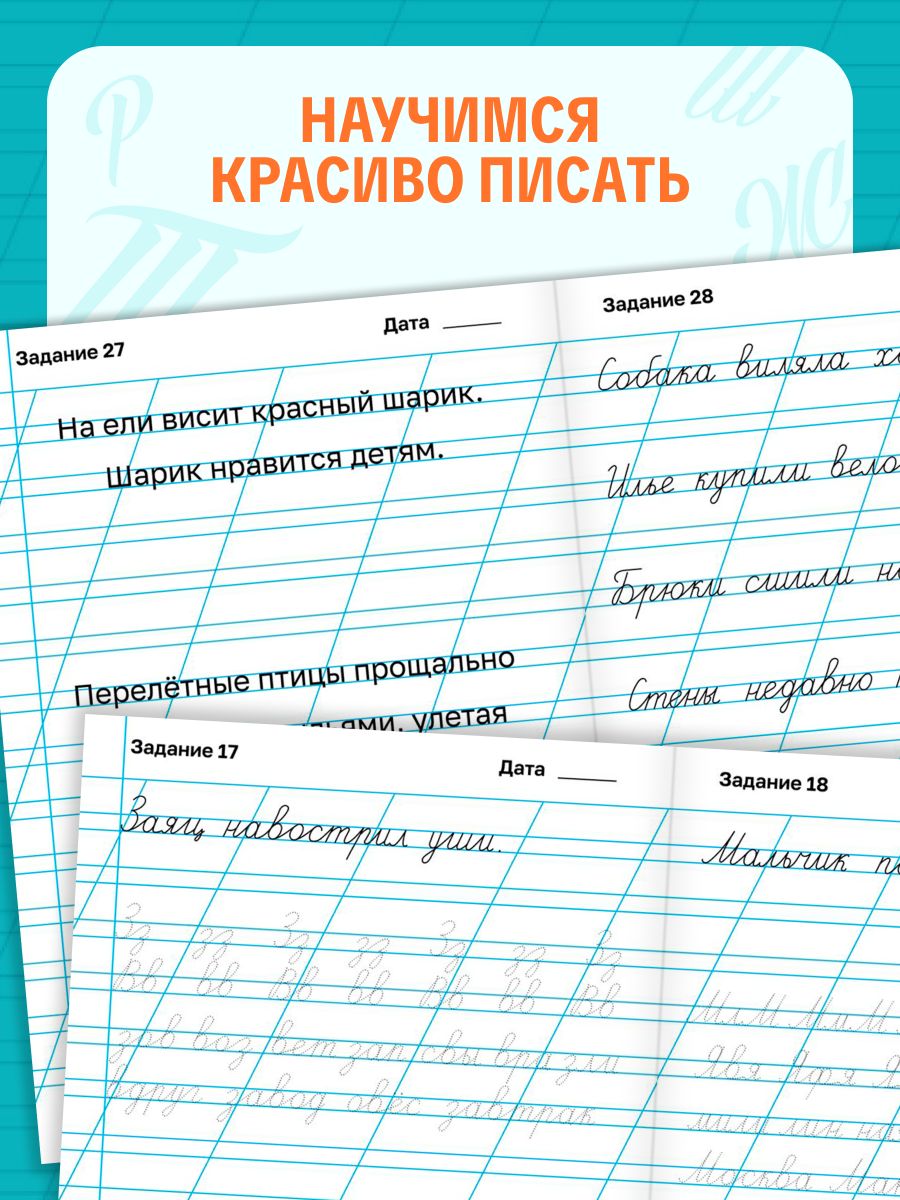 НАУЧИМСЯ
КРАСИВО ПИСАТЬ
Задание 27
Дата
На ели висит красный шарик.
Шарик нравится детям.
Перелётные птицы прощально
улетая
Задание 28
Собака виляла
Илье купили
Брюки сшили
Стены недавно
Задание 17
Дата
Заяц навострил уши.
Зз зз Зз зз Зз зз Зз
Вв вв Вв вв Вв вв Вв
зрв воз вет зап свы ври зли
вдруг завод овёс завтрак
Задание 18
Мальчик
МлМ МиМ
Явя Яфя
мили мин
Москва